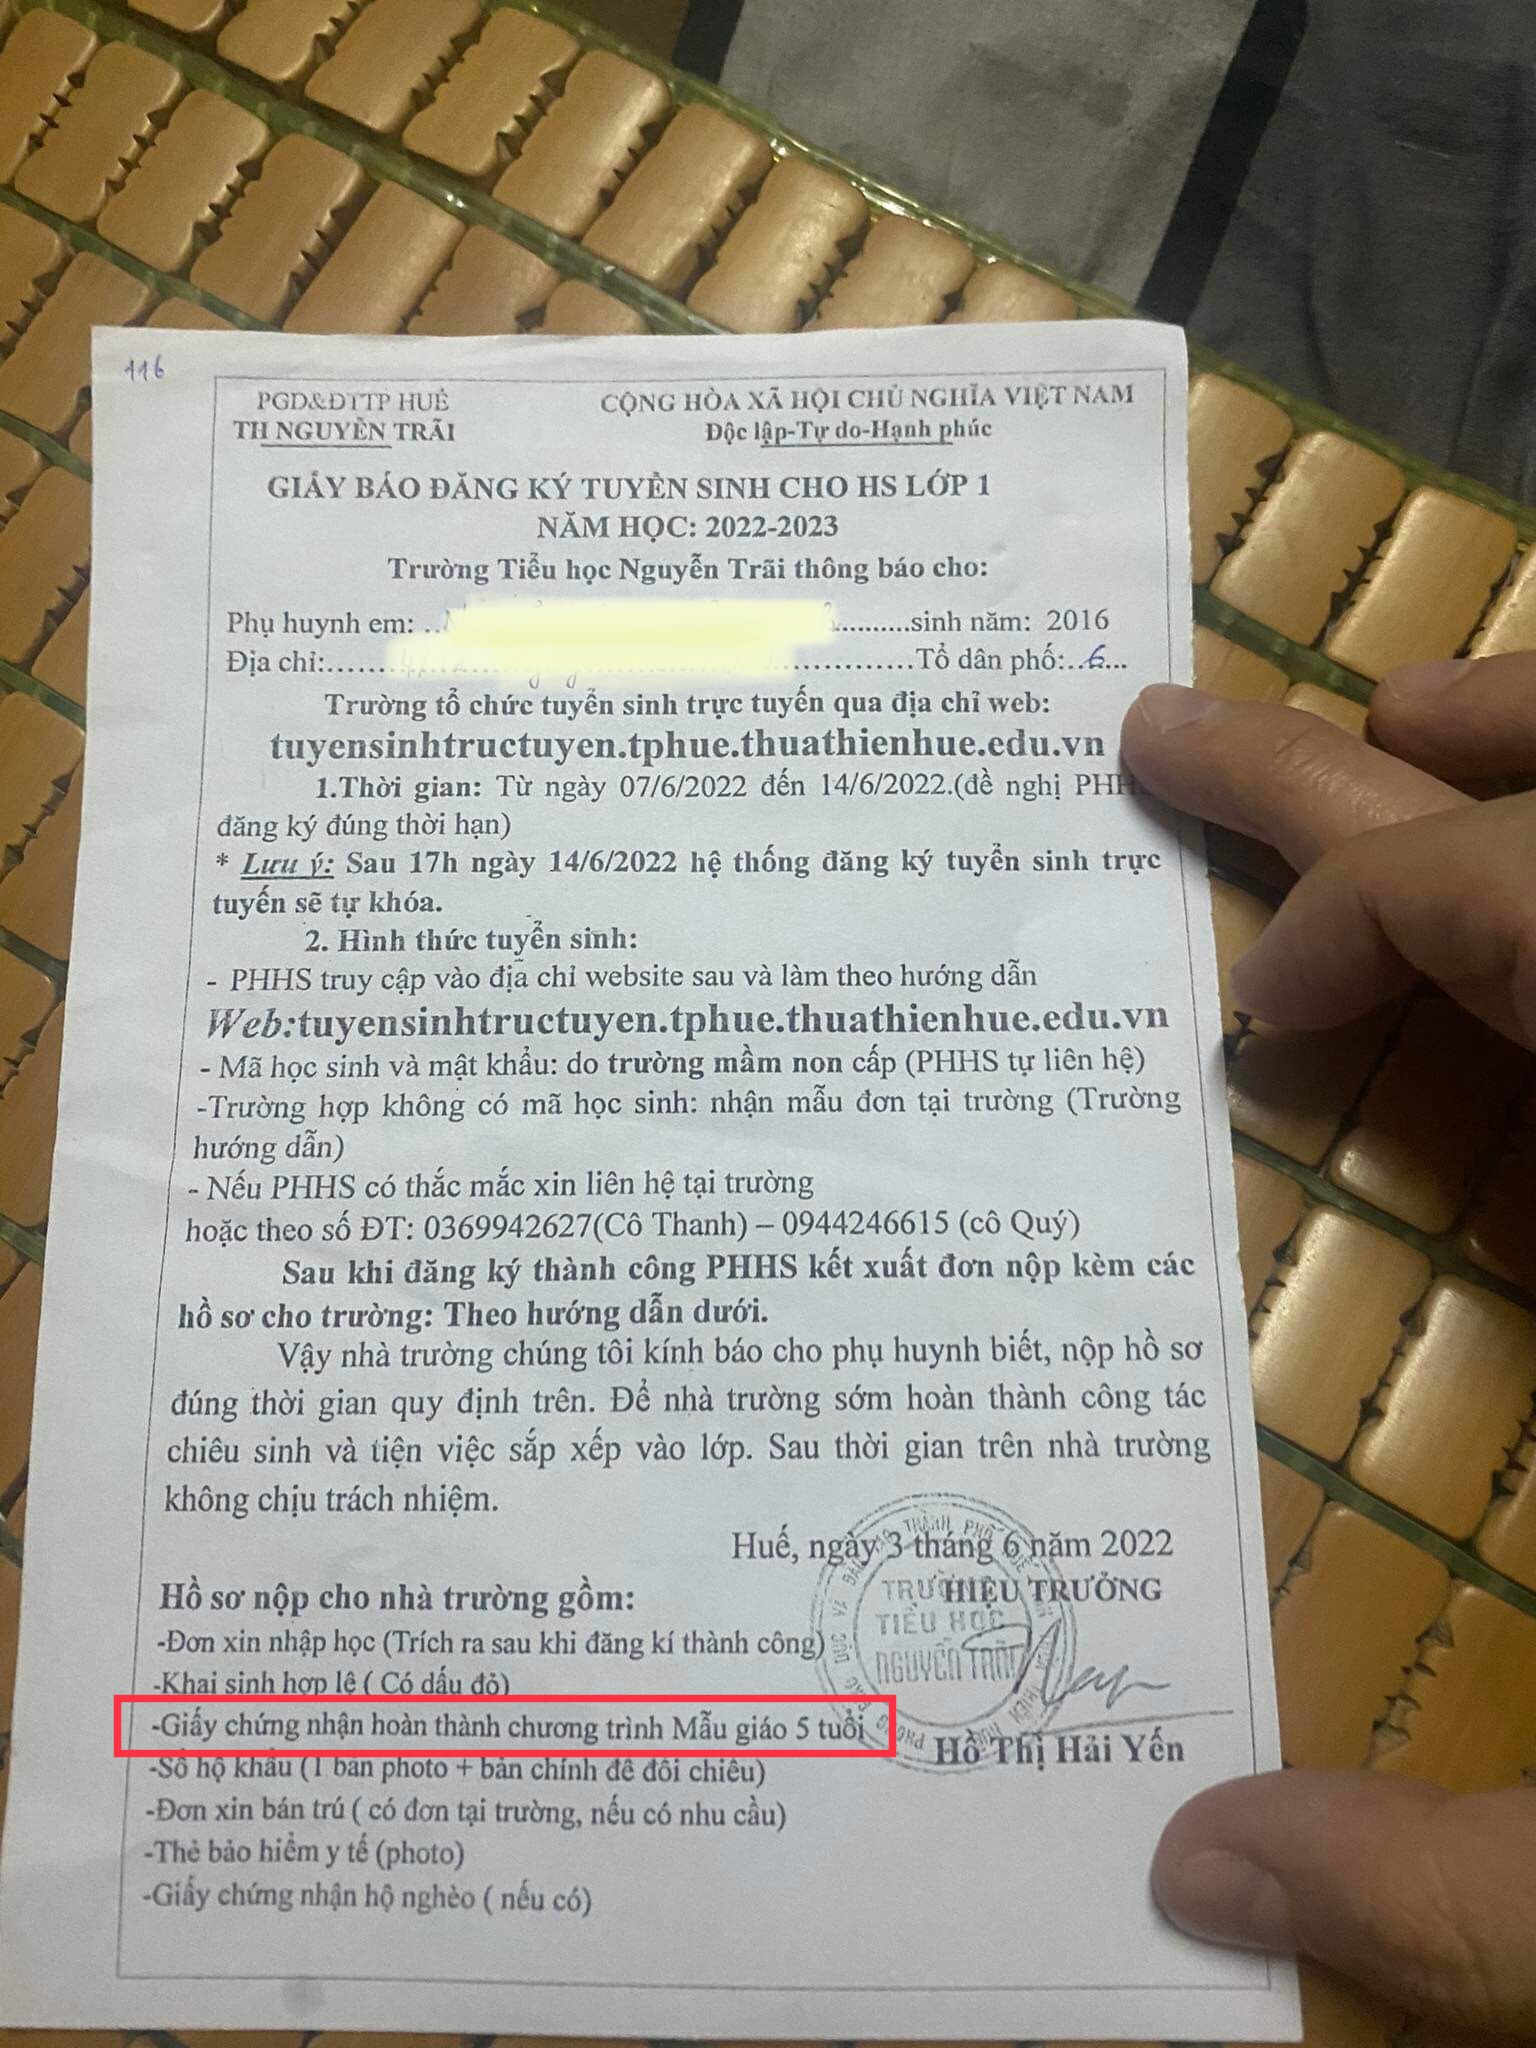 116
PGD&ĐTTP HUẾ
TH NGUYỄN TRÃI
CỘNG HÒA XÃ HỘI CHỦ NGHĨA VIỆT NAM
Độc lập-Tự do-Hạnh phúc
GIẤY BÁO ĐĂNG KÝ TUYỂN SINH CHO HS LỚP 1
NĂM HỌC: 2022-2023
Trường Tiểu học Nguyễn Trãi thông báo cho:
Phụ huynh em: .. ..........sinh năm: 2016
Địa chỉ:....... ..............Tổ dân phố:..6...
Trường tổ chức tuyển sinh trực tuyến qua địa chỉ web:
tuyensinhtructuyen.tphue.thuathienhue.edu.vn
1.Thời gian: Từ ngày 07/6/2022 đến 14/6/2022.(đề nghị
đăng ký đúng thời hạn)
* Lưu ý: Sau 17h ngày 14/6/2022 hệ thống đăng ký tuyển sinh trực
tuyến sẽ tự khóa.
2. Hình thức tuyển sinh:
- PHHS truy cập vào địa chỉ website sau và làm theo hướng dẫn
Web:tuyensinhtructuyen.tphue.thuathienhue.edu.vn
- Mã học sinh và mật khẩu: do trường mầm non cấp (PHHS tự liên hệ)
-Trường hợp không có mã học sinh: nhận mẫu đơn tại trường (Trường
hướng dẫn)
- Nếu PHHS có thắc mắc xin liên hệ tại trường
hoặc theo số ĐT: 0369942627(Cô Thanh) – 0944246615 (cô Quý)
Sau khi đăng ký thành công PHHS kết xuất đơn nộp kèm các
hồ sơ cho trường: Theo hướng dẫn dưới.
Vậy nhà trường chúng tôi kính báo cho phụ huynh biết, nộp hồ sơ
đúng thời gian quy định trên. Để nhà trường sớm hoàn thành công tác
chiêu sinh và tiện việc sắp xếp vào lớp. Sau thời gian trên nhà trường
không chịu trách nhiệm.
Huế, ngày 3 tháng 6 năm 2022
HIỆU TRƯỞNG
TRƯỜNG
TIỂU HỌC
NGUYỄN TRÃI
Hồ Thị Hải Yến
Hồ sơ nộp cho nhà trường gồm:
-Đơn xin nhập học (Trích ra sau khi đăng kí thành công)
-Khai sinh hợp lệ ( Có dấu đỏ)
-Giấy chứng nhận hoàn thành chương trình Mẫu giáo 5 tuổi
-Sổ hộ khẩu (1 bản photo + bản chính để đối chiếu)
-Đơn xin bán trú ( có đơn tại trường, nếu có nhu cầu)
-Thẻ bảo hiểm y tế (photo)
-Giấy chứng nhận hộ nghèo ( nếu có)